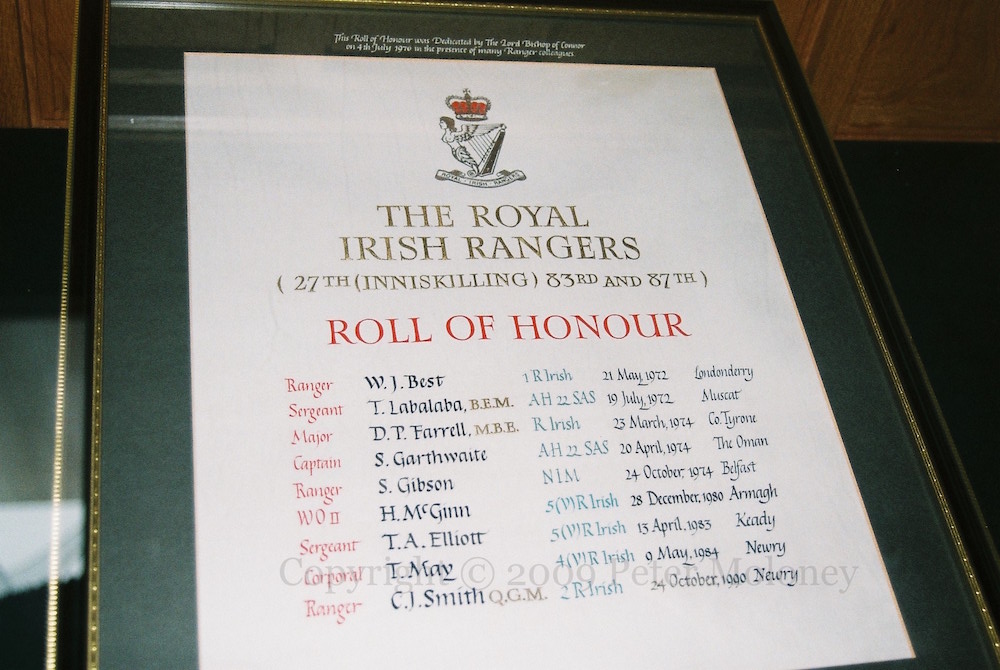 This Roll of Honour was Dedicated by The Lord Bishop of Connor
on 4th July 1976 in the presence of many Ranger colleagues
ROYAL · IRISH · RANGERS
THE ROYAL
IRISH RANGERS
( 27TH (INNISKILLING) 83RD AND 87TH )
ROLL OF HONOUR
Ranger W. J. Best 1 R Irish 21 May, 1972 Londonderry
Sergeant T. Labalaba, B.E.M. AH 22 SAS 19 July, 1972 Muscat
Major D. P. Farrell, M.B.E. R Irish 23 March, 1974 Co. Tyrone
Captain S. Garthwaite AH 22 SAS 20 April, 1974 The Oman
Ranger S. Gibson NIM 24 October, 1974 Belfast
WO II H. McGinn 5(V) R Irish 28 December, 1980 Armagh
Sergeant T. A. Elliott 5(V) R Irish 13 April, 1983 Keady
Corporal T. May 4(V) R Irish 9 May, 1984 Newry
Ranger C. J. Smith Q.G.M. 2 R Irish 24 October, 1990 Newry
Copyright © 2009 Peter Moloney